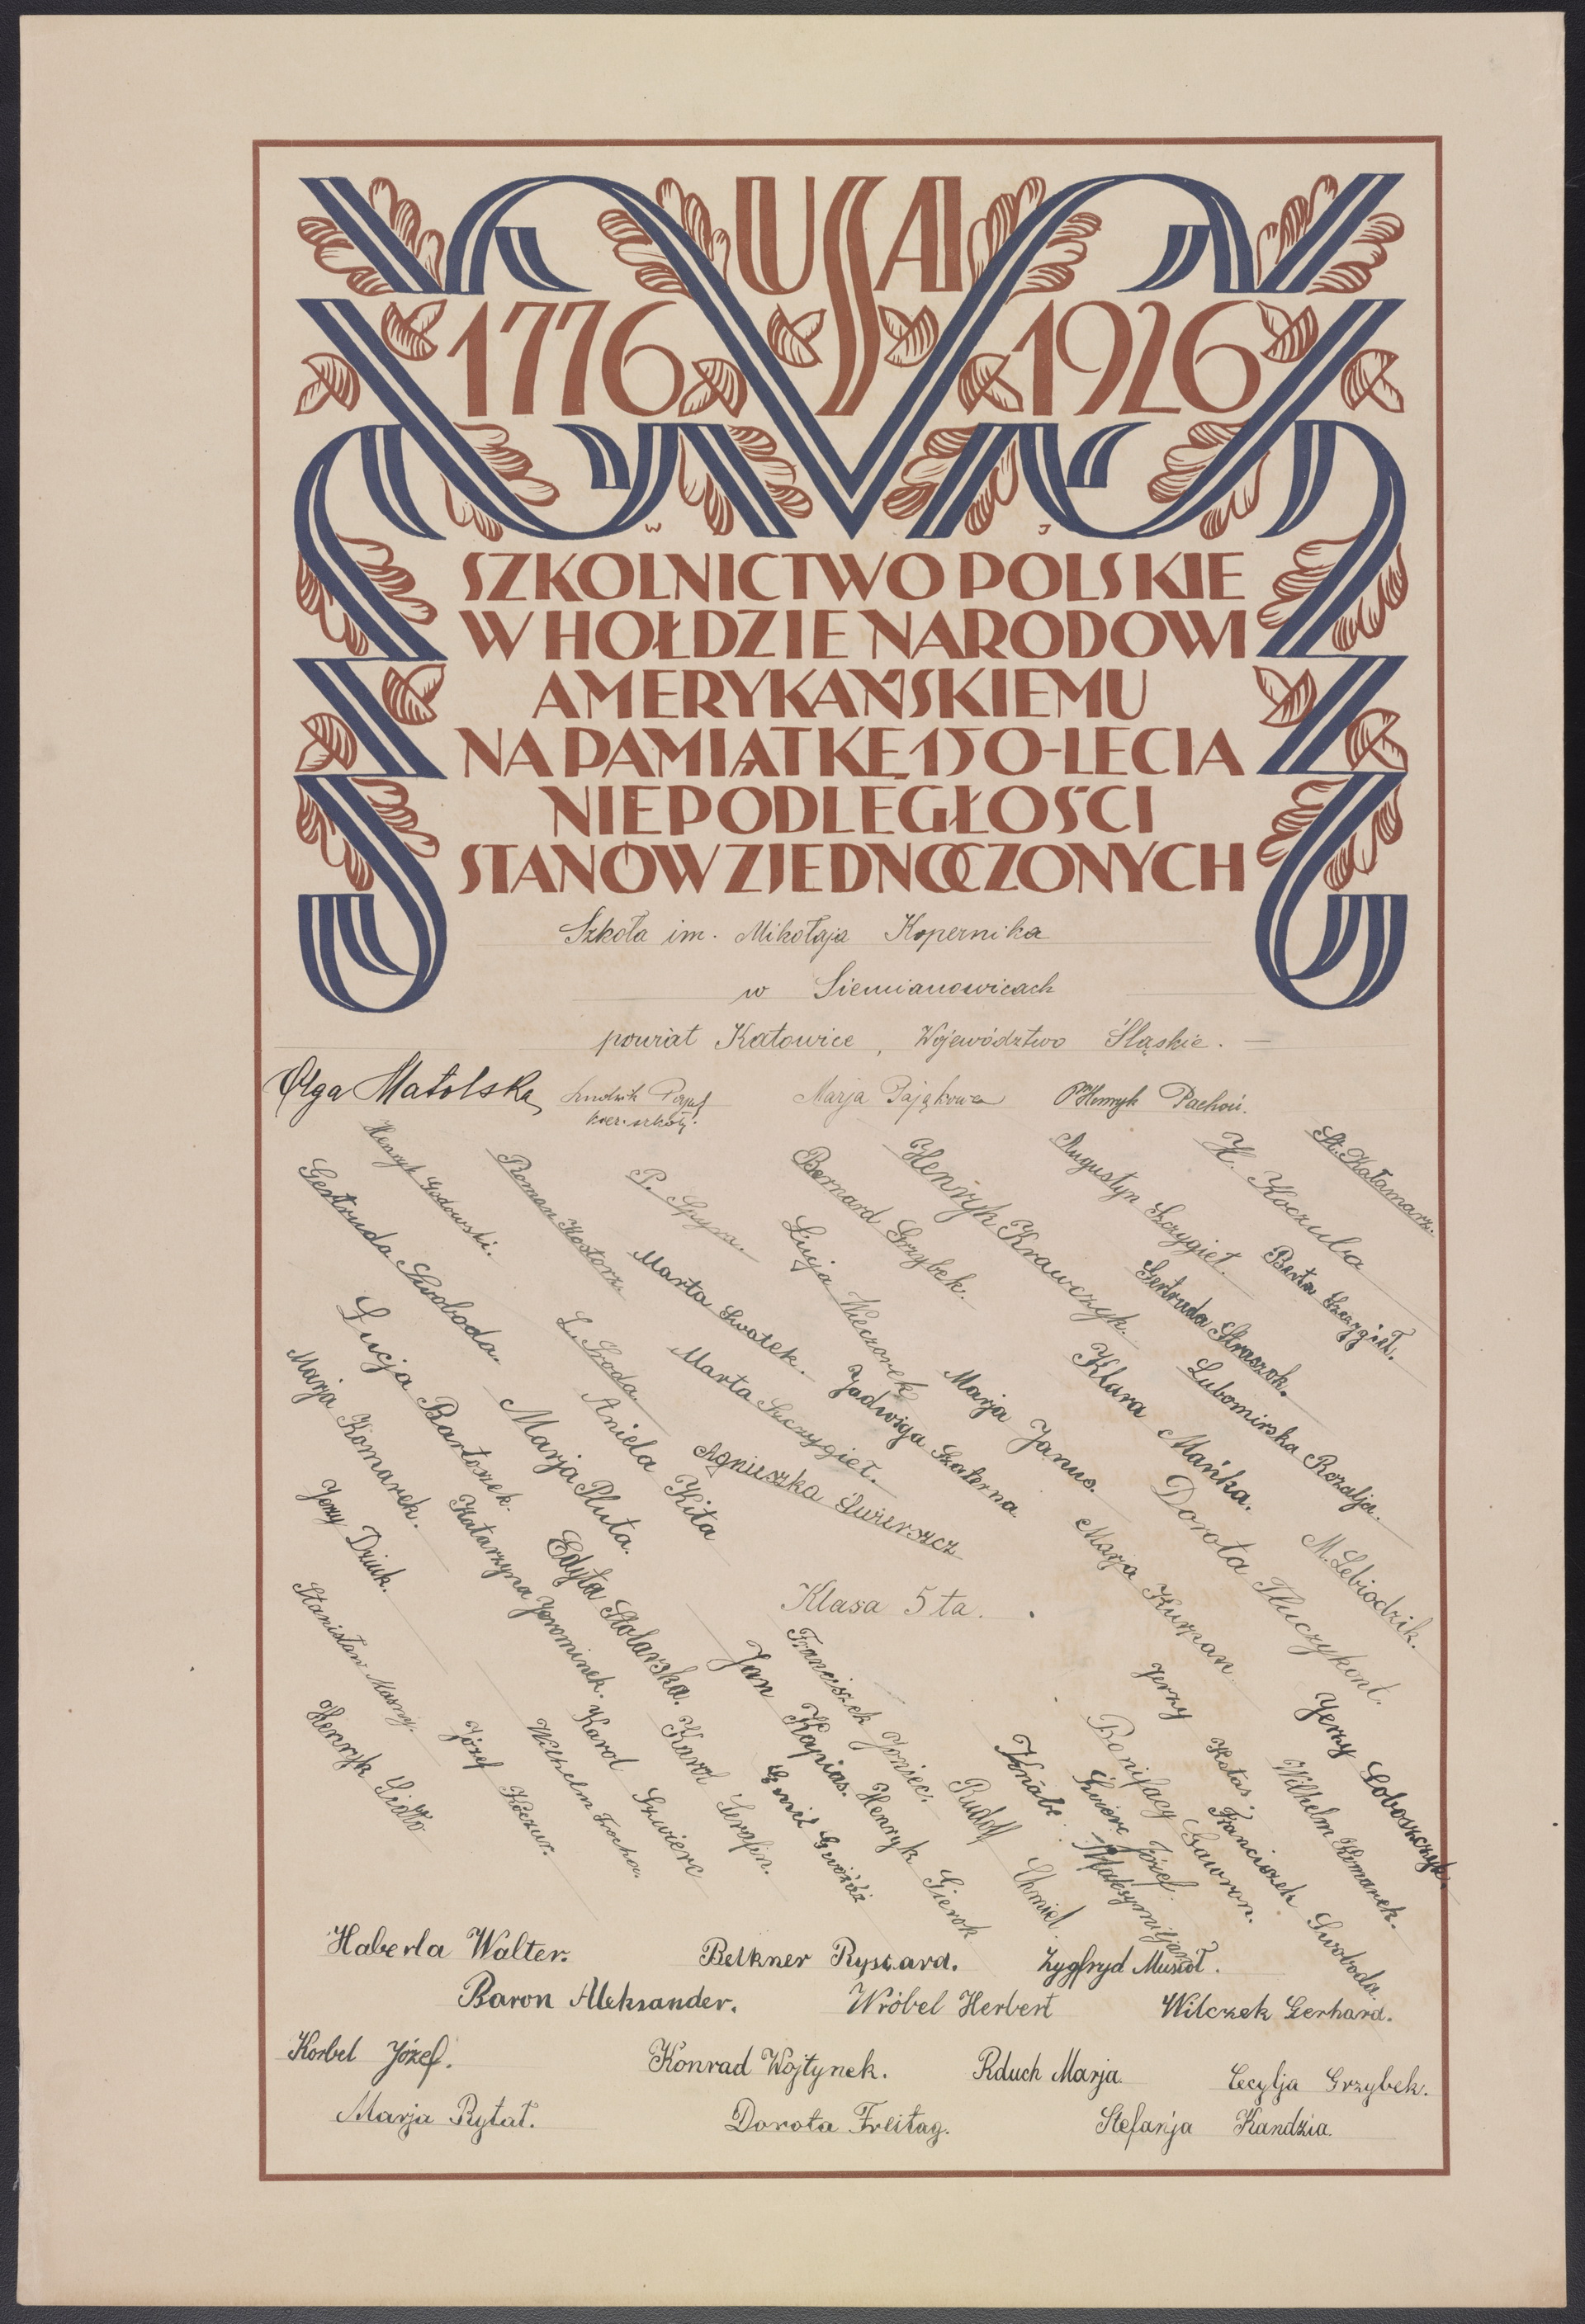 USA
1776 1926
W J
SZKOLNICTWO POLSKIE
W HOŁDZIE NARODOWI
AMERYKAŃSKIEMU
NA PAMIĄTKĘ 150-LECIA
NIEPODLEGŁOŚCI
STANÓW ZJEDNOCZONYCH
Szkoła im. Mikołaja Kopernika
w Siemianowicach
powiat Katowice, Województwo Śląskie. —
Olga Matolska
Ludwik
kier. szkoły.
Marja Pająkowa
Henryk Pachoń.
Henryk Godowski.
Roman Kostorz.
P. Spyra.
Bernard Grzybek.
Henryk Krawczyk.
Augustyn Szczygieł.
H. Koczuba
St. Kałamarz.
Gertruda Swoboda.
Marta Swatek.
Łucja Wieczorek
Gertruda Straszok.
Berta Szczygieł.
Łucja Bartoszek.
L. Środa.
Marta Szczygieł.
Jadwiga Szaterna.
Marja Janus.
Klara Mańka.
Lubomirska Rozalja.
Marja Komarek.
Marja Pluta.
Aniela Kita
Agnieszka Świerszcz
Dorota Tłuczykont.
M. Lebiodzik.
Jerzy Dziuk.
Katarzyna Jerominek.
Edyta Stolarska.
Marja Kurpan.
Klasa 5ta.
Stanisław Masny.
Jan Kapias.
Franciszek Joniec.
Jerzy Kotas.
Jerzy Łoboszczyk.
Henryk Sidło
Józef Koczur.
Wilhelm Trocha.
Karol Szwierc
Karol Serafin.
Emil Gwóźdź
Henryk Gierok
Rudolf Chmiel.
Knabe Maksymiljan
Świerc Józef.
Bonifacy Gawron.
Franciszek Swoboda.
Wilhelm Komarek.
Haberla Walter.
Belkner Ryszard.
Zygfryd Musioł.
Baron Aleksander.
Wróbel Herbert
Wilczek Gerhard.
Korbel Józef.
Konrad Wojtynek.
Rduch Marja.
Cecylja Grzybek.
Marja Rytat.
Dorota Freitag.
Stefanja Kandzia.